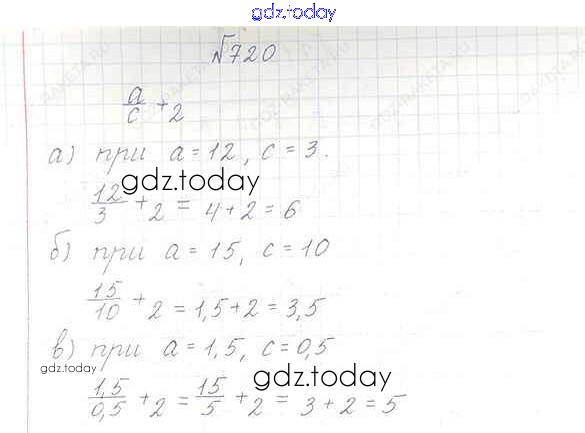 gdz.today
№720
a/c + 2
а) при a = 12, c = 3.
gdz.today
12/3 + 2 = 4 + 2 = 6
б) при a = 15, c = 10
15/10 + 2 = 1,5 + 2 = 3,5
в) при a = 1,5, c = 0,5
gdz.today
gdz.today
1,5/0,5 + 2 = 15/5 + 2 = 3 + 2 = 5